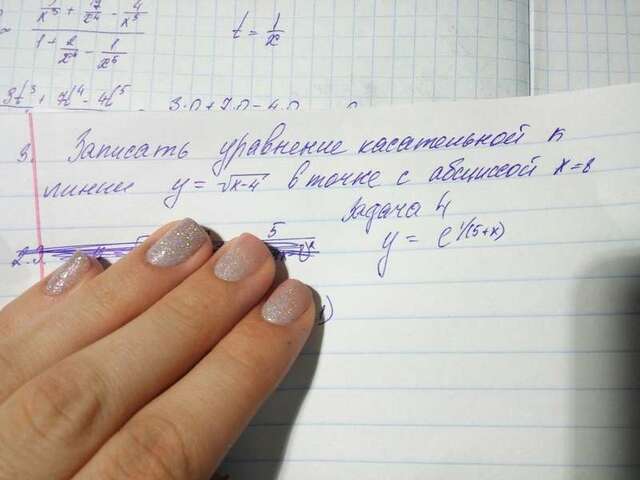 + 7/x⁴ - 4/x⁵
1 + 2/x⁴ - 1/x⁵
t = 1/x
3t³ + 7t⁴ - 4t⁵
3·0+7·0-4·0
3. Записать уравнение касательной к
линии y = √x-4 в точке с абсциссой x=8
Задача 4
5
y = e^1/(5+x)